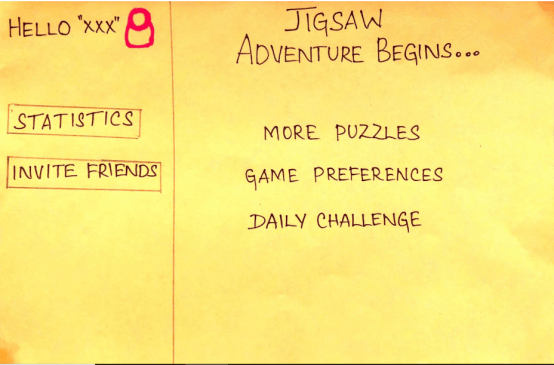 HELLO "XXX"
STATISTICS
INVITE FRIENDS
JIGSAW
ADVENTURE BEGINS...
MORE PUZZLES
GAME PREFERENCES
DAILY CHALLENGE